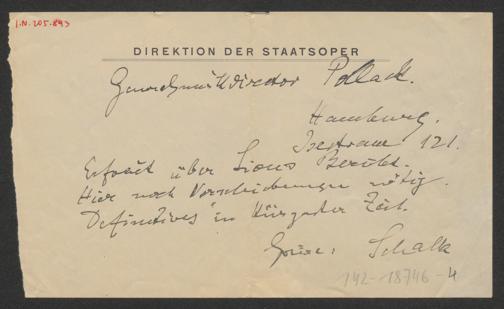 I.N. 205.893
DIREKTION DER STAATSOPER
Generalmusikdirector Pollack.
Hamburg.
Isestrasse 121.
Erfreut über Ihren Bericht.
Hier noch Verschiebungen nötig.
Definitives in kürzester Zeit.
Grüße: Schalk
142-18746-4